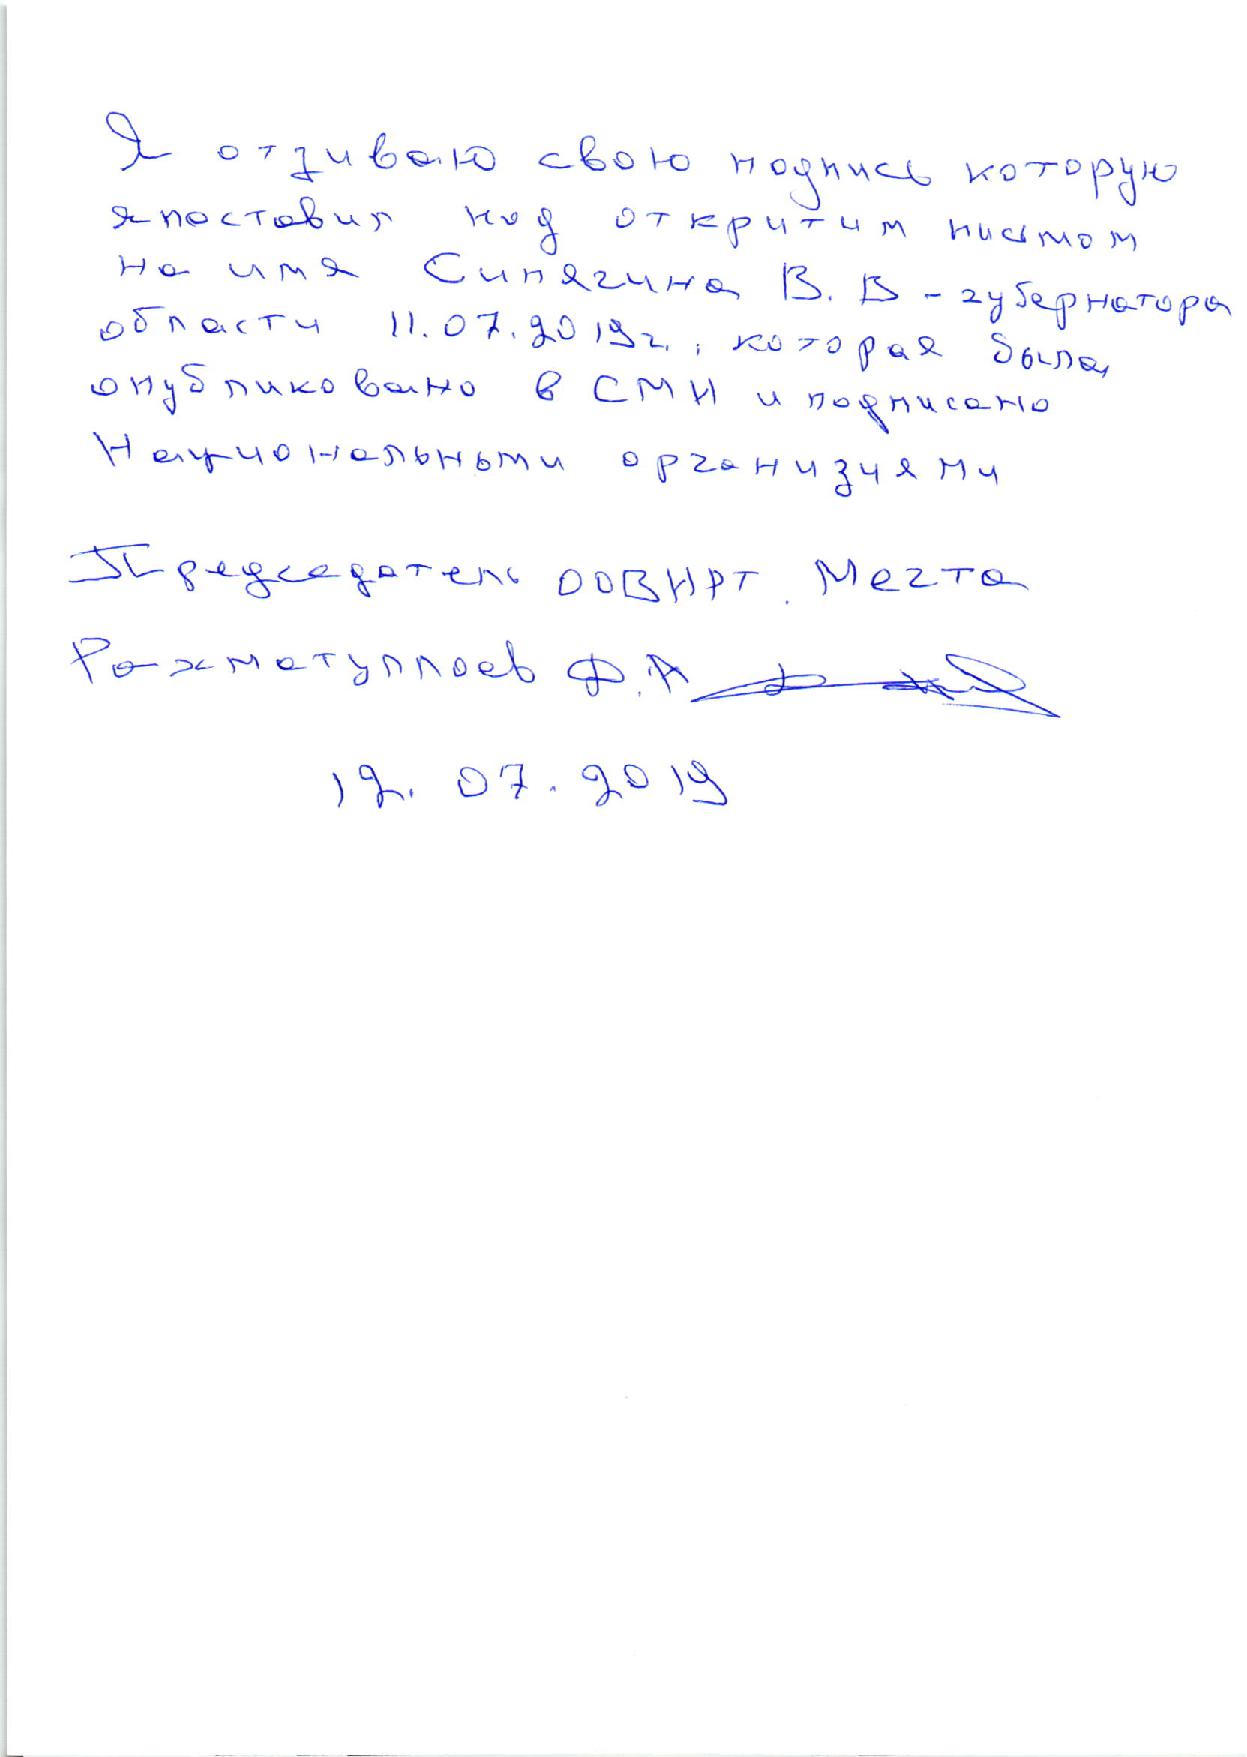 Я отзиваю свою подпись которую
я поставил под откритим письмом
на имя Сипягина В. В - губернатора
области 11.07.2019г., которая была
опубликовано в СМИ и подписано
Национальными организиями
Председатель ООВИРТ. Мечта
Рахматуллоев Ф.А
12.07.2019